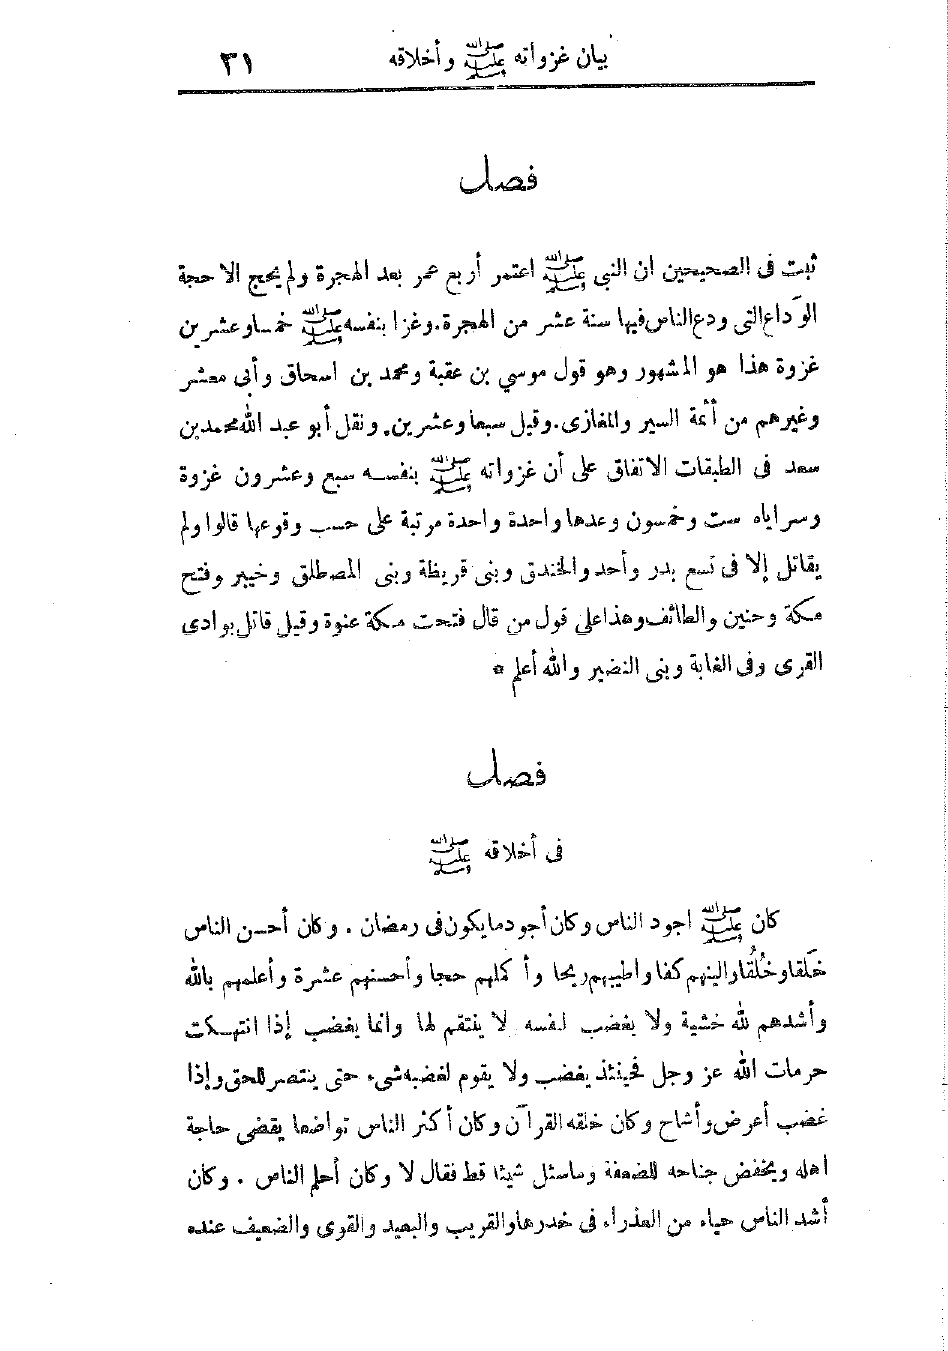 بيان غزواته ﷺ وأخلاقه ٣١
فصل
ثبت فى الصحيحين ان النبى ﷺ اعتمر أربع عمر بعد الهجرة ولم يحج الا حجة
الوداع التى ودع الناس فيها سنة عشر من الهجرة. وغزا بنفسه ﷺ خمسا وعشرين
غزوة هذا هو المشهور وهو قول موسي بن عقبة ومحمد بن اسحاق وأبى معشر
وغيرهم من أئمة السير والمغازى. وقيل سبعا وعشرين. ونقل أبو عبد الله محمد بن
سعد فى الطبقات الاتفاق على أن غزواته ﷺ بنفسه سبع وعشرون غزوة
وسراياه ست وخمسون وعدها واحدة واحدة مرتبة على حسب وقوعها قالوا ولم
يقاتل إلا فى تسع بدر وأحد والخندق وبنى قريظة وبنى المصطلق وخيبر وفتح
مكة وحنين والطائف وهذا على قول من قال فتحت مكة عنوة وقيل قاتل بوادى
القرى وفى الغابة وبنى النضير والله أعلم *
فصل
فى أخلاقه ﷺ
كان ﷺ اجود الناس وكان أجود ما يكون فى رمضان . وكان أحسن الناس
خَلقا وخُلُقا والينهم كفا واطيبهم ريحا وأ كملهم حجا وأحسنهم عشرة وأعلمهم بالله
وأشدهم لله خشية ولا يغضب لنفسه لا ينتقم لها وانما يغضب إذا انتهكت
حرمات الله عز وجل فحينئذ يغضب ولا يقوم لغضبه شىء حتى ينتصر للحق وإذا
غضب أعرض وأشاح وكان خلقه القرآن وكان أكثر الناس تواضعا يقضى حاجة
اهله ويخفض جناحه للضعفة وما سئل شيئا قط فقال لا وكان أحلم الناس . وكان
أشد الناس حياء من العذراء فى خدرها والقريب والبعيد والقوى والضعيف عنده